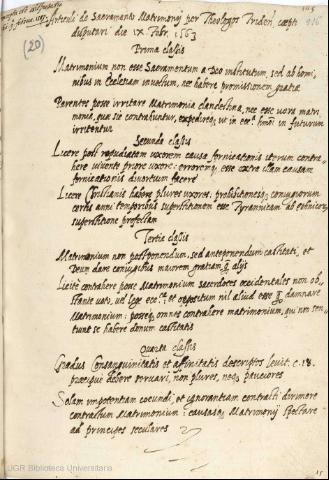 Articuli de Sacramento Matrimonij per Theologos Triden. cœpti
disputari die ix Febr. 1563
(20)
Prima classis
Matrimonium non esse Sacramentum a Deo institutum, sed ab homi,
nibus in Ecclesiam invectum, nec habere promissionem gratiæ
Parentes posse irritare Matrimonia clandestina, nec esse vera matri
monia, quæ sic contrahuntur, expedireq; ut in ecc.ª hmõi in futurum
irritentur
Secunda classis
Licere post repudiatam uxorem causa fornicationis iterum contra,
here vivente priore uxore: erroremq; esse extra illam causam
fornicationis divortium facere
Licere Christianis habere plures uxores. prohibitionesq; coniugiorum
certis anni temporibus superstitionem esse Tyrannicam ab ethnicor.
superstitione profectam
Tertia classis
Matrimonium non postponendum, sed anteponendum castitati, et
Deum dare coniugibus maiorem gratiam q. alijs
Licitè contrahere posse Matrimonium sacerdotes occidentales non ob,
stante voto, vel lege ecc.ca et oppositum nil aliud esse q. damnare
Matrimonium: posseq; omnes contrahere matrimonium, qui non sen,
tunt se habere donum castitatis
Quarta classis
Gradus Consanguinitatis et affinitatis descriptos Levit. c. 18.
debere servari, non plures, neq; pauciores
Solam impotentiam coeundi, et ignorantiam contracti dirimere
contractum Matrimonium: causasq; Matrimonij spectare
ad principes seculares
15
UGR Biblioteca Universitaria